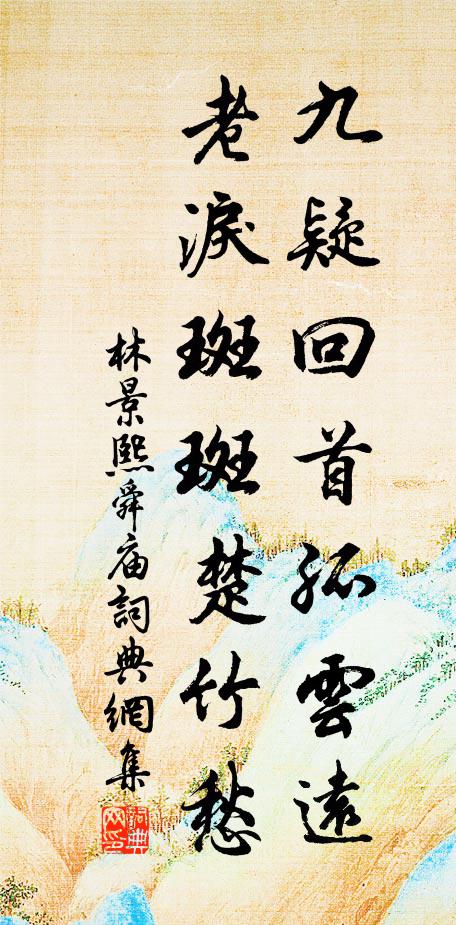 九疑回首孤雲遠
老淚斑斑楚竹愁
林景熙舜庙詞典網集
詞典網印